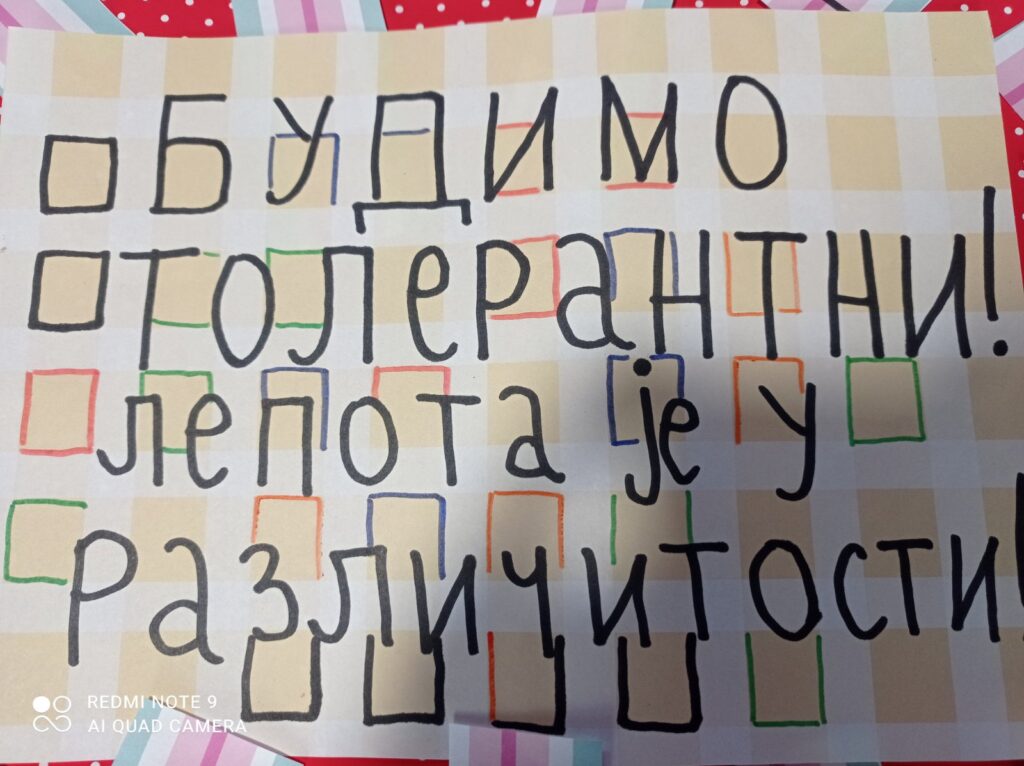 Будимо
толерантни!
лепота је у
различитости!
REDMI NOTE 9
AI QUAD CAMERA